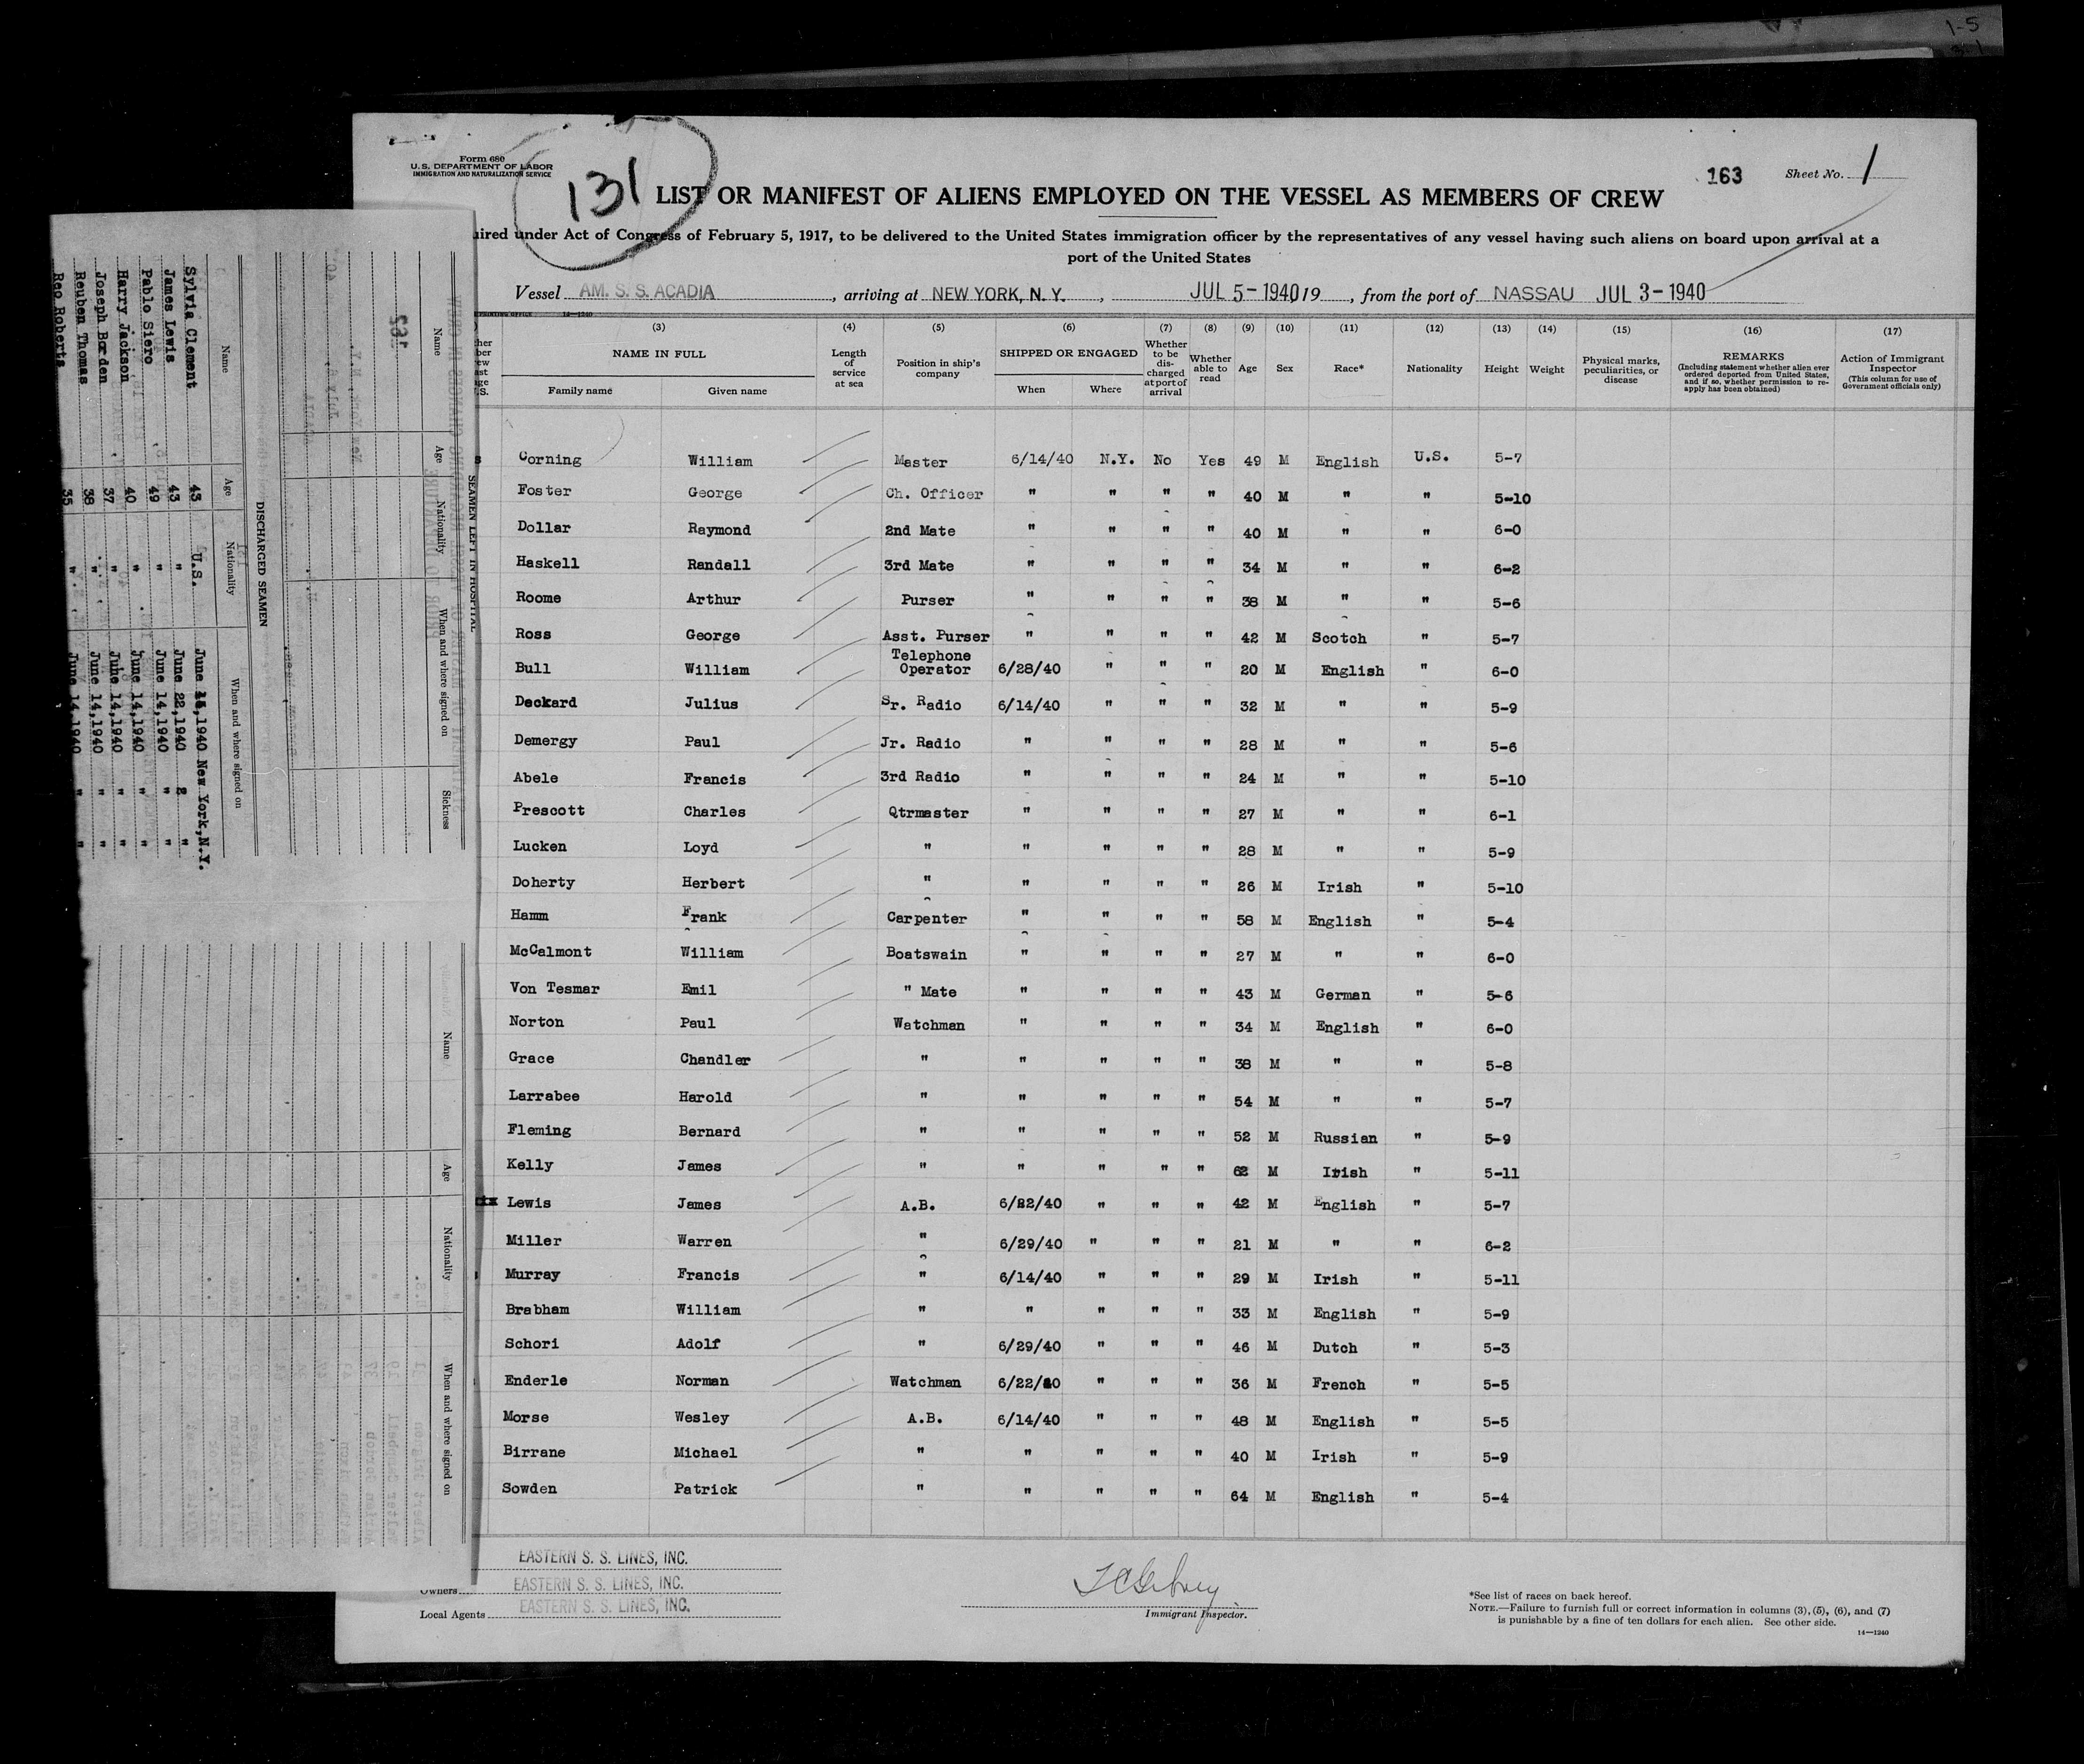 1-5
Form 680
U.S. DEPARTMENT OF LABOR
IMMIGRATION AND NATURALIZATION SERVICE
131
163
Sheet No. 1
LIST OR MANIFEST OF ALIENS EMPLOYED ON THE VESSEL AS MEMBERS OF CREW
uired under Act of Congress of February 5, 1917, to be delivered to the United States immigration officer by the representatives of any vessel having such aliens on board upon arrival at a
port of the United States
Vessel AM. S. S. ACADIA, arriving at NEW YORK, N. Y., JUL 5-1940 19, from the port of NASSAU JUL 3-1940
(3) (4) (5) (6) (7) (8) (9) (10) (11) (12) (13) (14) (15) (16) (17)
NAME IN FULL
Family name Given name
Length of service at sea
Position in ship's company
SHIPPED OR ENGAGED
When Where
Whether to be discharged at port of arrival
Whether able to read
Age Sex Race* Nationality Height Weight
Physical marks, peculiarities, or disease
REMARKS
(Including statement whether alien ever ordered deported from United States, and if so, whether permission to reapply has been obtained)
Action of Immigrant Inspector
(This column for use of Government officials only)
Corning William Master 6/14/40 N.Y. No Yes 49 M English U.S. 5-7
Foster George Ch. Officer " " " " 40 M " " 5-10
Dollar Raymond 2nd Mate " " " " 40 M " " 6-0
Haskell Randall 3rd Mate " " " " 34 M " " 6-2
Roome Arthur Purser " " " " 38 M " " 5-6
Ross George Asst. Purser " " " " 42 M Scotch " 5-7
Bull William Telephone Operator 6/28/40 " " " 20 M English " 6-0
Deckard Julius Sr. Radio 6/14/40 " " " 32 M " " 5-9
Demergy Paul Jr. Radio " " " " 28 M " " 5-6
Abele Francis 3rd Radio " " " " 24 M " " 5-10
Prescott Charles Qtrmaster " " " " 27 M " " 6-1
Lucken Loyd " " " " " 28 M " " 5-9
Doherty Herbert " " " " " 26 M Irish " 5-10
Hamm Frank Carpenter " " " " 58 M English " 5-4
McCalmont William Boatswain " " " " 27 M " " 6-0
Von Tesmar Emil " Mate " " " " 43 M German " 5-6
Norton Paul Watchman " " " " 34 M English " 6-0
Grace Chandler " " " " " 38 M " " 5-8
Larrabee Harold " " " " " 54 M " " 5-7
Fleming Bernard " " " " " 52 M Russian " 5-9
Kelly James " " " " " 62 M Irish " 5-11
Lewis James A.B. 6/22/40 " " " 42 M English " 5-7
Miller Warren " 6/29/40 " " " 21 M " " 6-2
Murray Francis " 6/14/40 " " " 29 M Irish " 5-11
Brabham William " " " " " 33 M English " 5-9
Schori Adolf " 6/29/40 " " " 46 M Dutch " 5-3
Enderle Norman Watchman 6/22/40 " " " 36 M French " 5-5
Morse Wesley A.B. 6/14/40 " " " 48 M English " 5-5
Birrane Michael " " " " " 40 M Irish " 5-9
Sowden Patrick " " " " " 64 M English " 5-4
EASTERN S. S. LINES, INC.
Owners EASTERN S. S. LINES, INC.
Local Agents EASTERN S. S. LINES, INC.
Immigrant Inspector.
*See list of races on back hereof.
NOTE.—Failure to furnish full or correct information in columns (3), (5), (6), and (7)
is punishable by a fine of ten dollars for each alien. See other side.
14—1240
SEAMEN LEFT IN HOSPITAL
Name Age Nationality When and where signed on Sickness
DISCHARGED SEAMEN
Name Age Nationality When and where signed on
Sylvia Clement 43 U.S. June 14,1940 New York,N.Y.
James Lewis 43 " June 22,1940 " "
Pablo Siero 49 " June 14,1940 " "
Harry Jackson 40 " June 14,1940 " "
Joseph Borden 37 " June 14,1940 " "
Reuben Thomas 38 " June 14,1940 " "
Reo Roberts 35 " June 14,1940 " "
Name Age Nationality When and where signed on